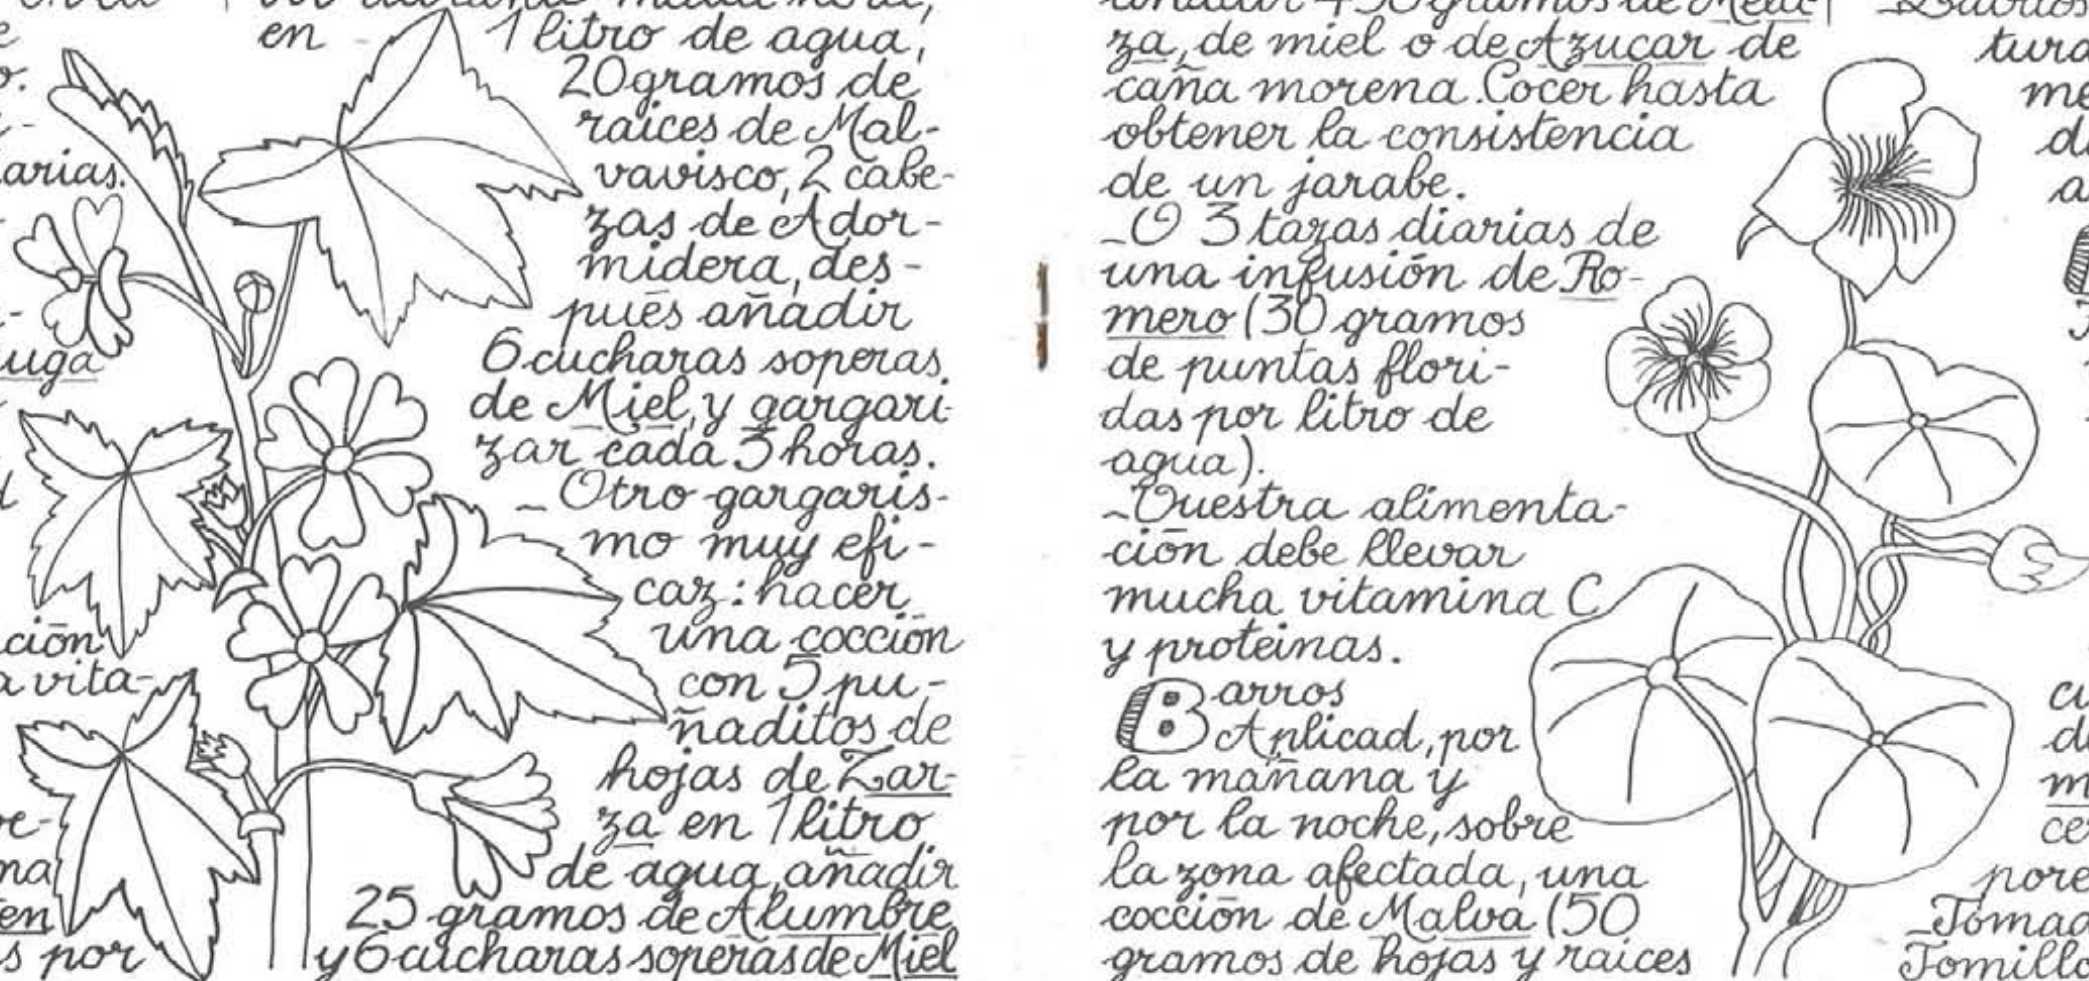 en 1 litro de agua,
20 gramos de
raíces de Mal-
vavisco, 2 cabe-
zas de Ador-
midera, des-
pués añadir
6 cucharas soperas
de Miel, y gargari-
zar cada 3 horas.
_Otro gargaris-
mo muy efi-
caz: hacer
una cocción
con 5 pu-
ñaditos de
hojas de Zar-
za en 1 litro
de agua, añadir
25 gramos de Alumbre
y 6 cucharas soperas de Miel
arias.
uga
ción
a vita-
en
s por
za, de miel o de Azucar de
caña morena. Cocer hasta
obtener la consistencia
de un jarabe.
_O 3 tazas diarias de
una infusión de Ro-
mero (30 gramos
de puntas flori-
das por litro de
agua).
_Vuestra alimenta-
ción debe llevar
mucha vitamina C
y proteinas.
Barros
Aplicad, por
la mañana y
por la noche, sobre
la zona afectada, una
cocción de Malva (50
gramos de hojas y raices
tura
me
pore
_Tomad
Tomillo